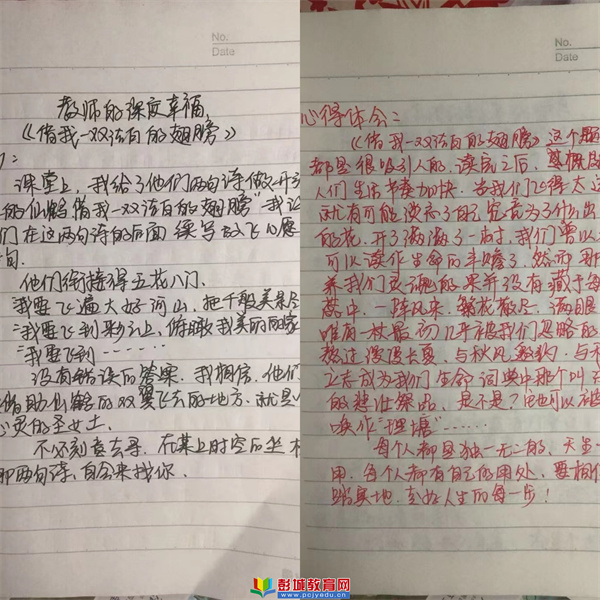 No.
Date
教师的深度幸福
《借我一双洁白的翅膀》
课堂上,我给了他们两句诗做开
的仙鹤借我一双洁白的翅膀"我
们在这两句诗的后面续写
句.
他们衔接得五花八门.
我要飞遍大好河山,把千般美景尽
"我要飞到彩云上,俯瞰我美丽的国家
"我要飞到……
没有错误的答案,我相信,他们
借助仙鹤的双翼飞去的地方,就是
心灵的圣女土.
不必刻意去寻,在某个时空的坐标
那两句诗,自会来找你.
No.
Date
心得体会:
《借我一双洁白的翅膀》这个题
都是很吸引人的,读完之后,
人们生活节奏加快,当我们飞得太
就有可能淡忘了自己究竟为了什么出
的花,开了谢,谢了一时,我们曾以
可以读作生命的
养我们灵魂的果并没有藏于
蕊中,一阵风来,繁花散尽,满眼
唯有一枝最初几乎被我们忽略的
熬过漫漫长夏,与秋风邀约,与
立志成为我们生命词典中那个叫
的
,是不是?它也可以被
唤作"理塘"……
每个人都是独一无二的,天生
用,每个人都有自己的用处,要相信
踏实地,走好人生的每一步!
彭城教育网
www.pcjyedu.cn